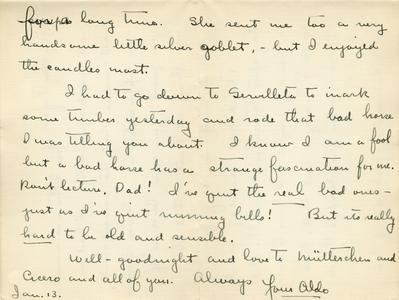 for a long time. She sent me too a very
handsome little silver goblet, - but I enjoyed
the candles most.
I had to go down to Servilleta to mark
some timber yesterday and rode that bad horse
I was telling you about. I know I am a fool
but a bad horse has a strange fascination for me.
Don't lecture, Dad! I've quit the real bad ones -
just as I've quit running bills! But its really
hard to be old and sensible.
Well - goodnight and love to Mütterchen and
Cicero and all of you. Always Your Aldo
Jan. 13.